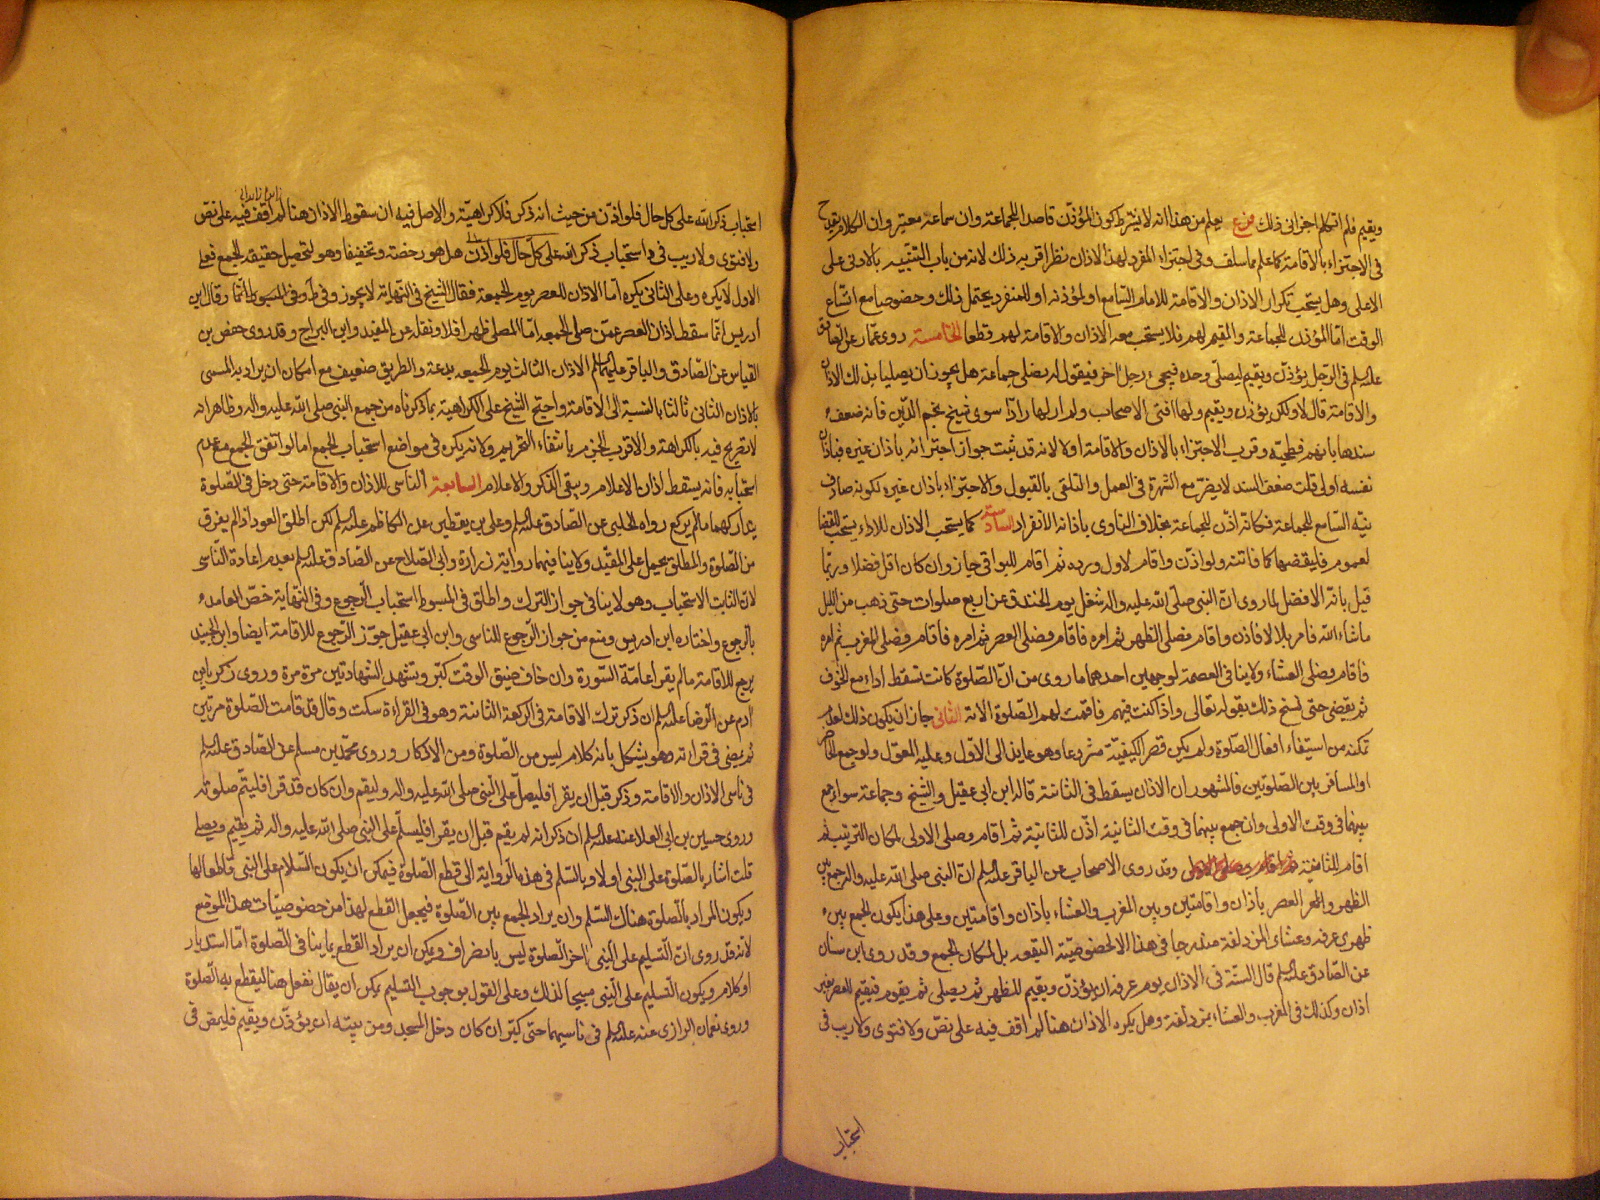 ويقيم فلم اتكلم اجزاني ذلك فرع يعلم من هذا انه لا يشترط كون المؤذن قاصد اللجماعة وان سماعه معتبر وان الكلام لا يقدح
في الاجتزاء بالاقامة كما علم مما سلف وفي اجتزاء المنفرد بهذا الاذان نظر اقربه ذلك لانه من باب التنبيه بالادنى على
الاعلى وهل يستحب تكرار الاذان والاقامة للامام السامع او لمؤذنه او للمنفرد يحتمل ذلك وخصوصا مع اتساع
الوقت اما المؤذن للجماعة والمقيم لهم فلا يستحب معه الاذان والاقامة لهم قطعا الخامسة روى عمار عن الصادق
عليه السلم في الرجل يؤذن ويقيم ليصلي وحده فيجيء رجل اخر فيقول له نصلي جماعة هل يجوز ان يصليا بذلك الاذان
والاقامة قال لا ولكن يؤذن ويقيم وبها افتى الاصحاب ولم ار لها رادا سوى شيخ نجم الدين فانه ضعف
سندها بانهم فطحية وقرب الاجتزاء بالاذان والاقامة اولا لانه قد ثبت جواز اجتزائه باذان غيره فباذان
نفسه اولى قلت ضعف السند لا يضر مع الشهرة في العمل والتلقي بالقبول والاجتزاء باذان غيره لكونه صادف
نية السامع للجماعة فكانه اذن للجماعة بخلاف الناوي باذانه الانفراد السادسة كما يستحب الاذان للاداء يستحب للقضا
لعموم فليقضها كما فاتته ولو اذن واقام لاول ورده ثم اقام للبواقي جاز وان كان اقل فضلا وربما
قيل بانه الافضل لما روى ان النبي صلى الله عليه واله شغل يوم الخندق عن اربع صلوات حتى ذهب من الليل
ما شاء الله فامر بلالا فاذن واقام فصلى الظهر ثم امره فاقام فصلى العصر ثم امره فاقام فصلى المغرب ثم امره
فاقام فصلى العشاء ولا ينافي العصمة لوجهين احدهما ما روى من ان الصلوة كانت تسقط اداء مع الخوف
ثم تقضى حتى نسخ ذلك بقوله تعالى واذا كنت فيهم فاقمت لهم الصلوة الاية الثاني جاز ان يكون ذلك لعدم
تمكنه من استيفاء افعال الصلوة ولم يكن قصر الكيفية مشروعا وهو عايد الى الاول وعليه المعول ولو جمع الحاضر
او المسافر بين الصلوتين فالمشهور ان الاذان يسقط في الثانية قاله ابن ابي عقيل والشيخ وجماعة سواء جمع
بينهما في وقت الاولى وان جمع بينهما في وقت الثانية اذن للثانية ثم اقام وصلى الاولى لمكان الترتيب ثم
اقام للثانية وقد روى الاصحاب عن الباقر عليه السلم ان النبي صلى الله عليه واله جمع بين
الظهر والعصر باذان واقامتين وبين المغرب والعشاء باذان واقامتين وعلى هذا يكون الجمع بين
ظهري عرفه وعشائي المزدلفة مندرجا في هذا لا لخصوصية البقعة بل لمكان الجمع وقد روى ابن سنان
عن الصادق عليه السلم قال السنة في الاذان يوم عرفه ان يؤذن ويقيم للظهر ثم يصلي ثم يقوم فيقيم للعصر بغير
اذان وكذلك في المغرب والعشاء بمزدلفة وهل يكره الاذان هنا لم اقف فيه على نص ولا فتوى ولا ريب في
استحباب
استحباب ذكر الله على كل حال فلو اذن من حيث انه ذكر فلا كراهية والاصل فيه ان سقوط الاذان هنا لم اقف فيه على نص
ولا فتوى ولا ريب في استحباب ذكر الله على كل حال فلو اذن هل هو رخصة وتخفيفا وهو لتحصيل حقيقة الجمع فعلى
الاول لا يكره وعلى الثاني يكره اما الاذان للعصر يوم الجمعة فقال الشيخ في النهاية لا يجوز وقال ابن
ادريس انما سقط اذان العصر عمن صلى الجمعه اما المصلي ظهرا فلا ونقله عن المفيد وابن البراج وقد روى حفص بن
القياس عن الصادق والباقر عليهما السلم الاذان الثالث يوم الجمعه بدعة والطريق ضعيف مع امكان ان يراد به المسمى
بالاذان الثاني ثالثا بالنسبة الى الاقامة واحتج الشيخ على الكراهية بما ذكرناه من جمع النبي صلى الله عليه واله وظاهر انه
لا تصريح فيه بالكراهة والاقرب الجزم بانتفاء التحريم وانه يكره في مواضع استحباب الجمع اما لو اتفق الجمع مع عدم
استحبابه فانه يسقط اذان الاعلام ويبقى الذكر والاعلام السابعة الناسي للاذان والاقامة حتى دخل في الصلوة
يتداركهما ما لم يركع رواه الحلبي عن الصادق عليه السلم وعلي بن يقطين عن الكاظم عليه السلم لكن اطلق العود اذا لم يفرغ
من الصلوة والمطلق يحمل على المقيد ولا ينافيهما رواية زرارة وابي الصلاح عن الصادق عليه السلم بعدم اعادة الناسي
لان الثابت الاستحباب وهو لا ينافي جواز الترك واطلق في المبسوط استحباب الرجوع وفي النهاية خص العامد
بالرجوع واختاره ابن ادريس ومنع من جواز الرجوع للناسي وابن ابي عقيل جوز الرجوع للاقامة ايضا وابن الجنيد
يرجع للاقامة ما لم يقرا عامة السورة وان خاف ضيق الوقت كبر وتشهد الشهادتين مرة مرة وروى زكريا بن
ادم عن الرضا عليه السلم ان ذكر ترك الاقامة في الركعة الثانية وهو في القراءة سكت وقال قد قامت الصلوة مرتين
ثم يمضي في قراءته وهو يشكل بانه كلام ليس من الصلوة ومن الاذكار وروى محمد بن مسلم عن الصادق عليه السلم
في ناسي الاذان والاقامة وذكر قبل ان يقرا فليصل على النبي صلى الله عليه واله وليقم وان كان قد قرا فليتم صلوته
وروى حسين بن ابي العلا عنه عليه السلم ان ذكر انه لم يقم قبل ان يقرا فليسلم على النبي صلى الله عليه واله ثم يقيم ويصلي
قلت اشار بالصلوة على النبي اولا وبالسلم في هذه الرواية الى قطع الصلوة فيمكن ان يكون السلام على النبي قاطعا لها
ويكون المراد بالصلوة هناك السلم وان يراد الجمع بين الصلوة فيجعل القطع لهذا من خصوصيات هذا الموضع
لانه قد روى ان التسليم على النبي اخر الصلوة ليس بانصراف ويمكن ان يراد القطع بما ينافي الصلوة اما استدبار
او كلام ويكون التسليم على النبي مبيحا لذلك وعلى القول بوجوب التسليم يمكن ان يقال يفعل هنا ليقطع به الصلوة
وروى نعمان الرازي عنه عليه السلم في ناسيهما حتى كبر ان كان دخل المسجد ومن نيته ان يؤذن ويقيم فليمض في